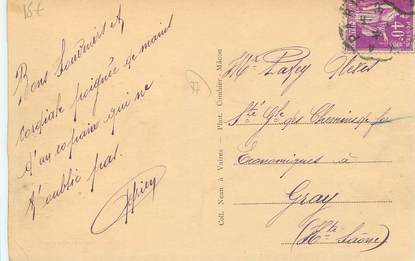 15€
Bons Souvenirs et
cordiale poignée de mains
d'un copain qui ne
t'oublie pas.
77
Coll. Neau à Vaires — Phot. Combier Mâcon
40c
Mr
Sté Gle des Chemins de fer
Economiques à
Gray
(Hte Saône)